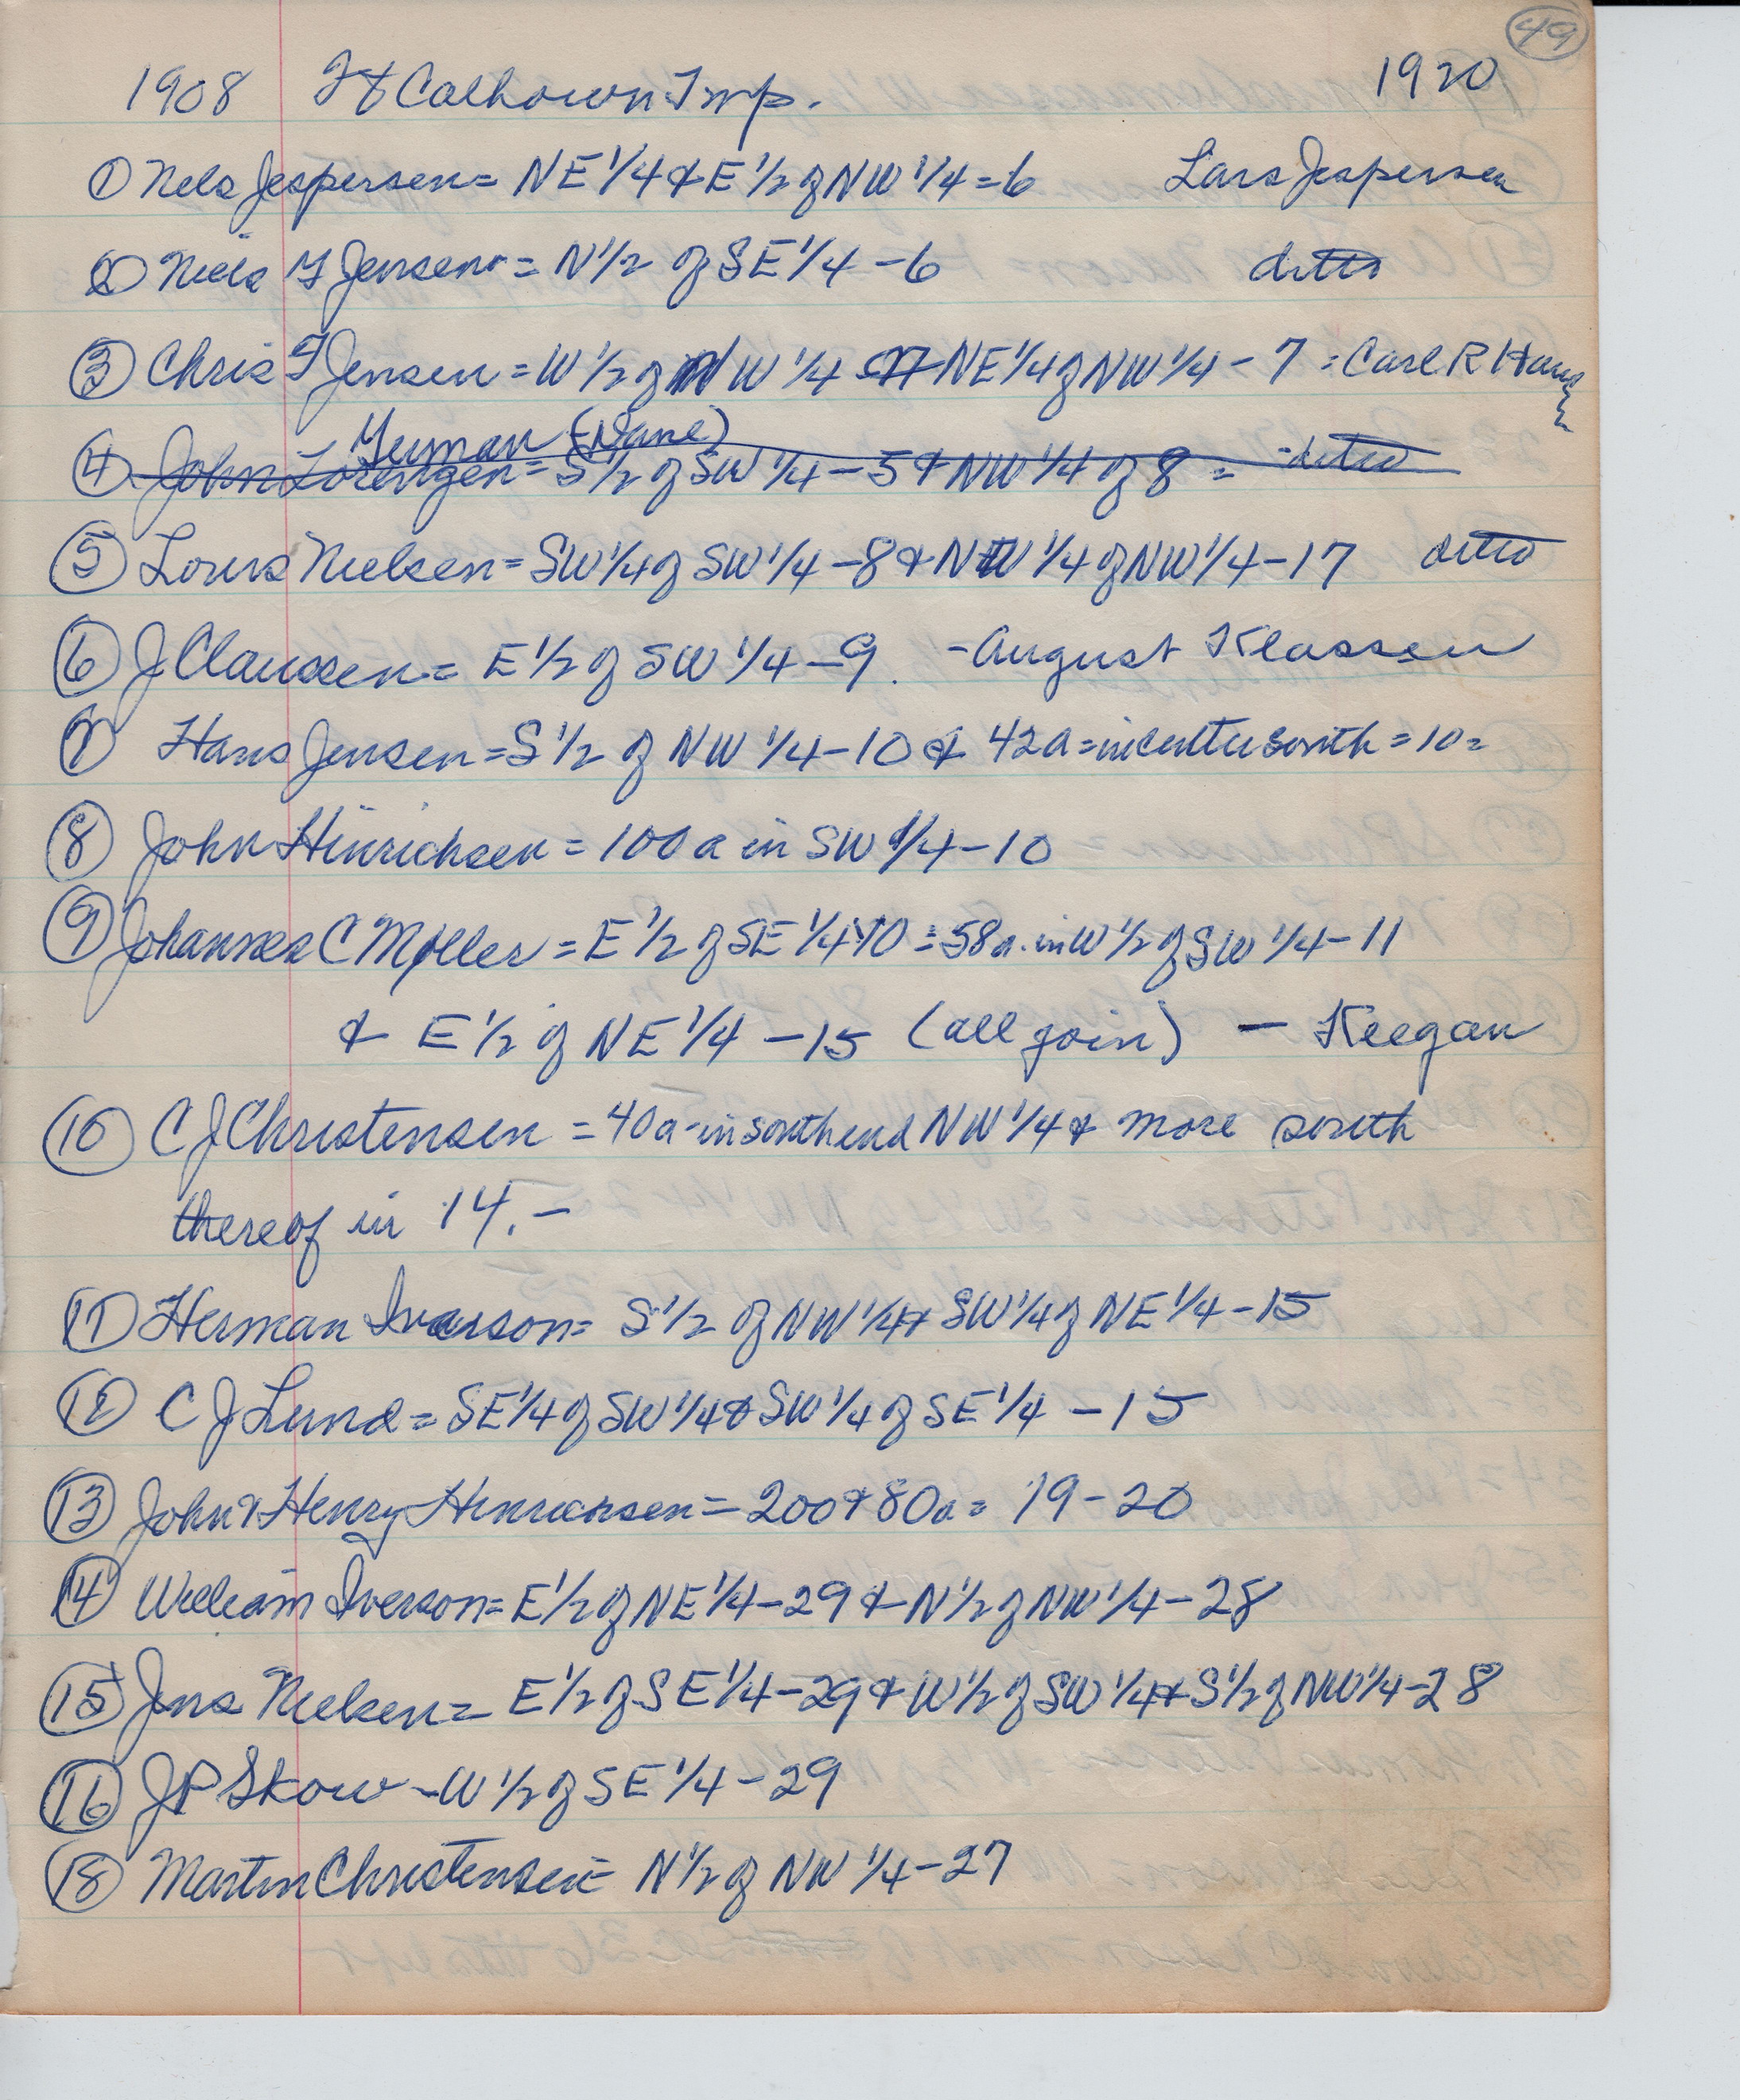 49
1908 Ft Calhoun Twp. 1920
① Nels Jespersen = NE 1/4 & E 1/2 of NW 1/4 = 6 Lars Jespersen
② Niels J Jensen = N 1/2 of SE 1/4 - 6 ditto
③ Chris J Jensen = W 1/2 of NW 1/4 NE 1/4 of NW 1/4 - 7 = Carl R Hansen
German (Name)
④ John Lorengen = S 1/2 of SW 1/4 - 5 & NW 1/4 of 8 = - ditto
⑤ Louis Nielsen = SW 1/4 of SW 1/4 - 8 & NW 1/4 of NW 1/4 - 17 ditto
⑥ J Claussen = E 1/2 of SW 1/4 - 9. - August Klassen
⑦ Hans Jensen = S 1/2 of NW 1/4 - 10 & 42a = in center south = 10 =
⑧ John Hinrichsen = 100 a in SW 1/4 - 10
⑨ Johannes C Moller = E 1/2 of SE 1/4 10 = 58 a. in W 1/2 of SW 1/4 - 11
& E 1/2 of NE 1/4 - 15 (all join) - Keegan
⑩ C J Christensen = 40 a - in south end NW 1/4 & more south
thereof in 14. -
⑪ Herman Iverson = S 1/2 of NW 1/4 & SW 1/4 of NE 1/4 - 15
⑫ C J Lund = SE 1/4 of SW 1/4 & SW 1/4 of SE 1/4 - 15
⑬ John & Henry Hinrichsen = 200 & 80a = 19 - 20
⑭ William Iverson = E 1/2 of NE 1/4 - 29 & N 1/2 of NW 1/4 - 28
⑮ Jens Nielsen = E 1/2 of SE 1/4 - 29 & W 1/2 of SW 1/4 & S 1/2 of NW 1/4 - 28
⑯ J P Skow - W 1/2 of SE 1/4 - 29
⑱ Martin Christensen = N 1/2 of NW 1/4 - 27